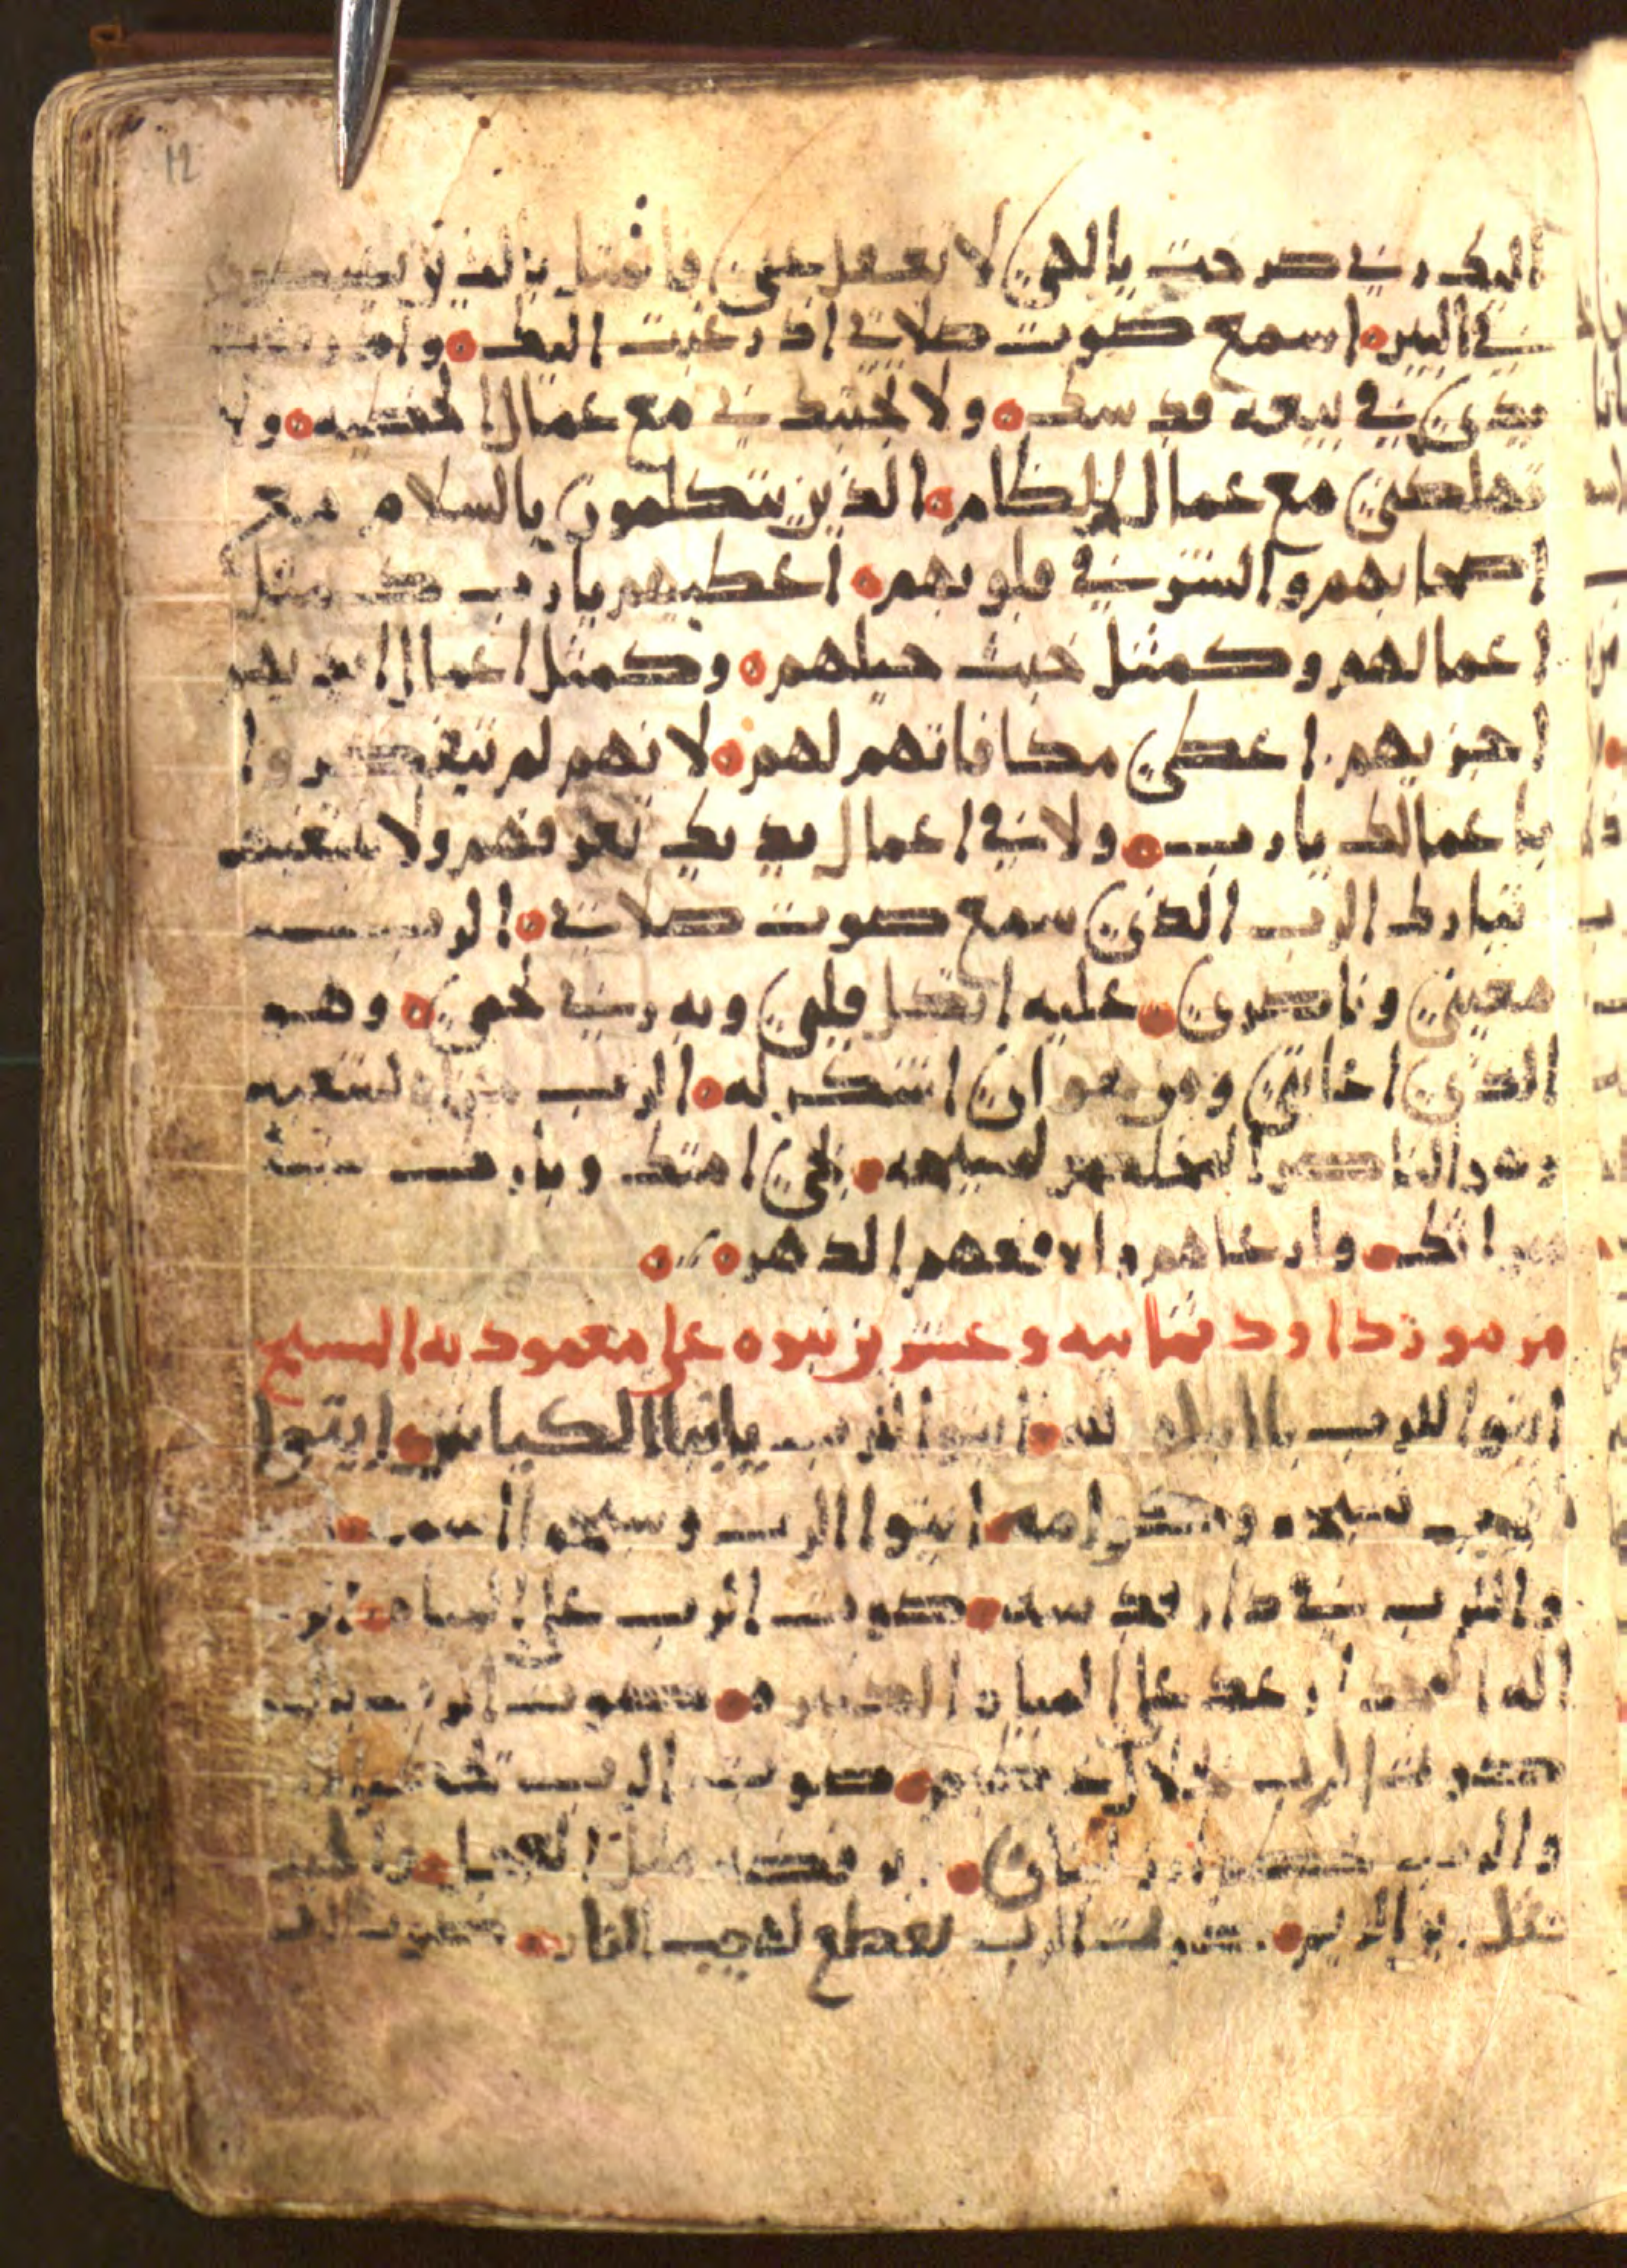 12
اليك ربي صرخت يا الهي لا تغفل عني فامثل بالذين يهبطون
في البير ۝ اسمع صوت صلاتي اذ رغبت اليك ۝ واذ رفعت
يدي في بيعه قدسك ۝ ولا تجتبذني مع عمال الخطيه ۝ ولا
تهلكني مع عمال الظلم ۝ الذين يتكلمون بالسلام مع
اصحابهم والشر في قلوبهم ۝ اعطيهم يا رب كمثل
اعمالهم وكمثل خبث حيلهم ۝ وكمثل اعمال ايديهم
اجزيهم اعطي مكافاتهم لهم ۝ لانهم لم يتفكروا
باعمالك يا رب ۝ ولا في اعمال يديك تعرفهم ولا
تبارك الرب الذي سمع صوت صلاتي ۝ الرب
معيني وناصري ۝ عليه اتكل قلبي وبه ربي لحمي ۝ وهو
الذي اغاثني ومن هو ان اشكر له ۝ الرب عز لشعبه
وهو الناصر المخلص لمسيحه ۝ نجي امتك وبارك
ميراثك ۝ وارعاهم وارفعهم الدهر ۝ ۝
مزمور داود ثمانيه وعشرين نبوه على معموديه المسيح
ايتوا للرب يا ابنا الله ۝ ايتوا للرب يابنا الكباش ۝ ايتوا
للرب تسبحه وكرامه ۝ ايتوا الرب وسبحوا اسمه ۝
والرب في دار قدسه ۝ صوت الرب على المياه ۝
اله المجد ارعد على المياه الكثيره ۝ صوت الرب بقوه
صوت الرب بجلال عظيم ۝ صوت الرب
والرب لبنان ۝ مثل العجل ۝
صوت الرب يقطع لهيب النار ۝ صوت الرب